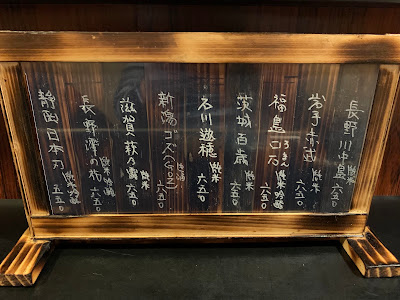 長野 川中島 純米 六五〇
岩手 純米 六五〇
福島 ロ万 ろまん 純米吟醸 六五〇
茨城 百歳 純米 六五〇
石川 遊穂 純米 六五〇
新潟 六五〇
滋賀 萩乃露 純米 六五〇
長野 澤の 純米吟醸 六五〇
静岡 日本刀 純米吟醸 五五〇